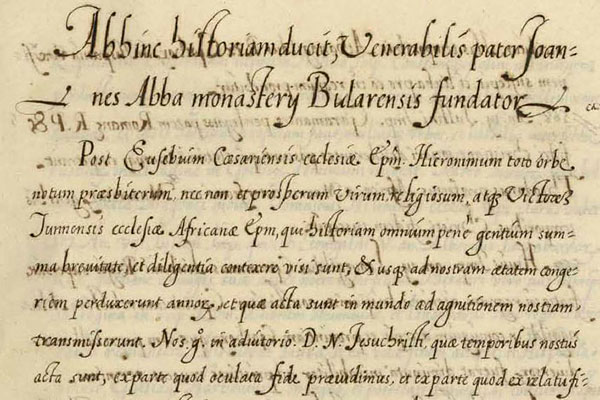 Abhinc historiam ducit, Venerabilis pater Joan-
nes Abba monastery Bularensis fundator
Post Eusebium Cæsariensis ecclesiæ Epm. Hieronimum toto orbe
notum præsbiterum, nec non et prosperum virum religiosum, atq; Victorē
Tunnensis ecclesiæ Africanæ Epm, qui historiam omnium penè gentium sum-
ma brevitate, et diligentia contexere visi sunt, & usq; ad nostram ætatem conge-
riem perduxerunt annoꝝ, et quæ acta sunt in mundo ad agnitionem nostram
transmisserunt. Nos g°. in adiutorio D. N. Jesuchristi, quæ temporibus nostris
acta sunt, ex parte quod oculata fide prævidimus, et ex parte quod ex relatu fi-